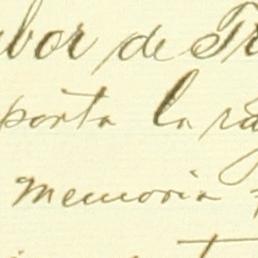 abor de Tr
porta la ra
memoria